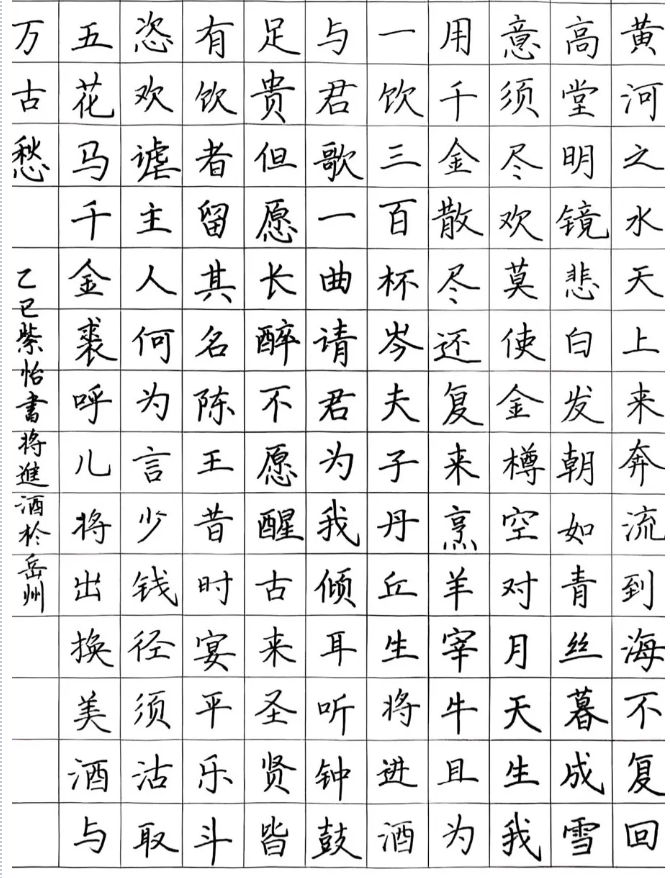 黄河之水天上来奔流到海不复回
高堂明镜悲白发朝如青丝暮成雪
意须尽欢莫使金樽空对月天生我
用千金散尽还复来烹羊宰牛且为
一饮三百杯岑夫子丹丘生将进酒
与君歌一曲请君为我倾耳听钟鼓
足贵但愿长醉不愿醒古来圣贤皆
有饮者留其名陈王昔时宴平乐斗
恣欢谑主人何为言少钱径须沽取
五花马千金裘呼儿将出换美酒与
万古愁
乙巳紫怡書将進酒於岳州